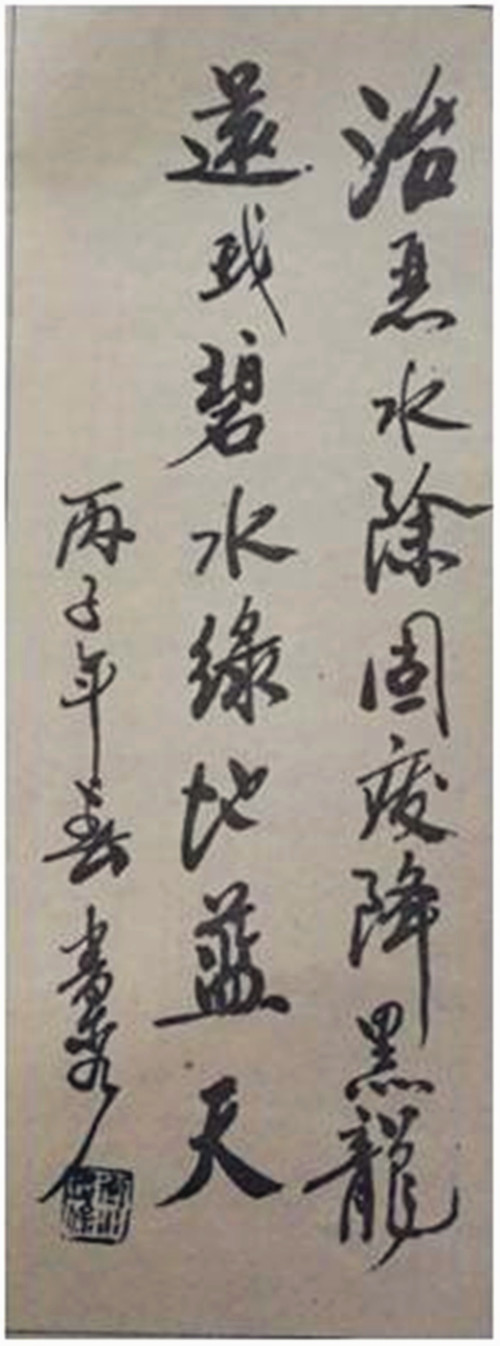 治恶水除固废降黑龍
還我碧水緑地蓝天
丙子年春書